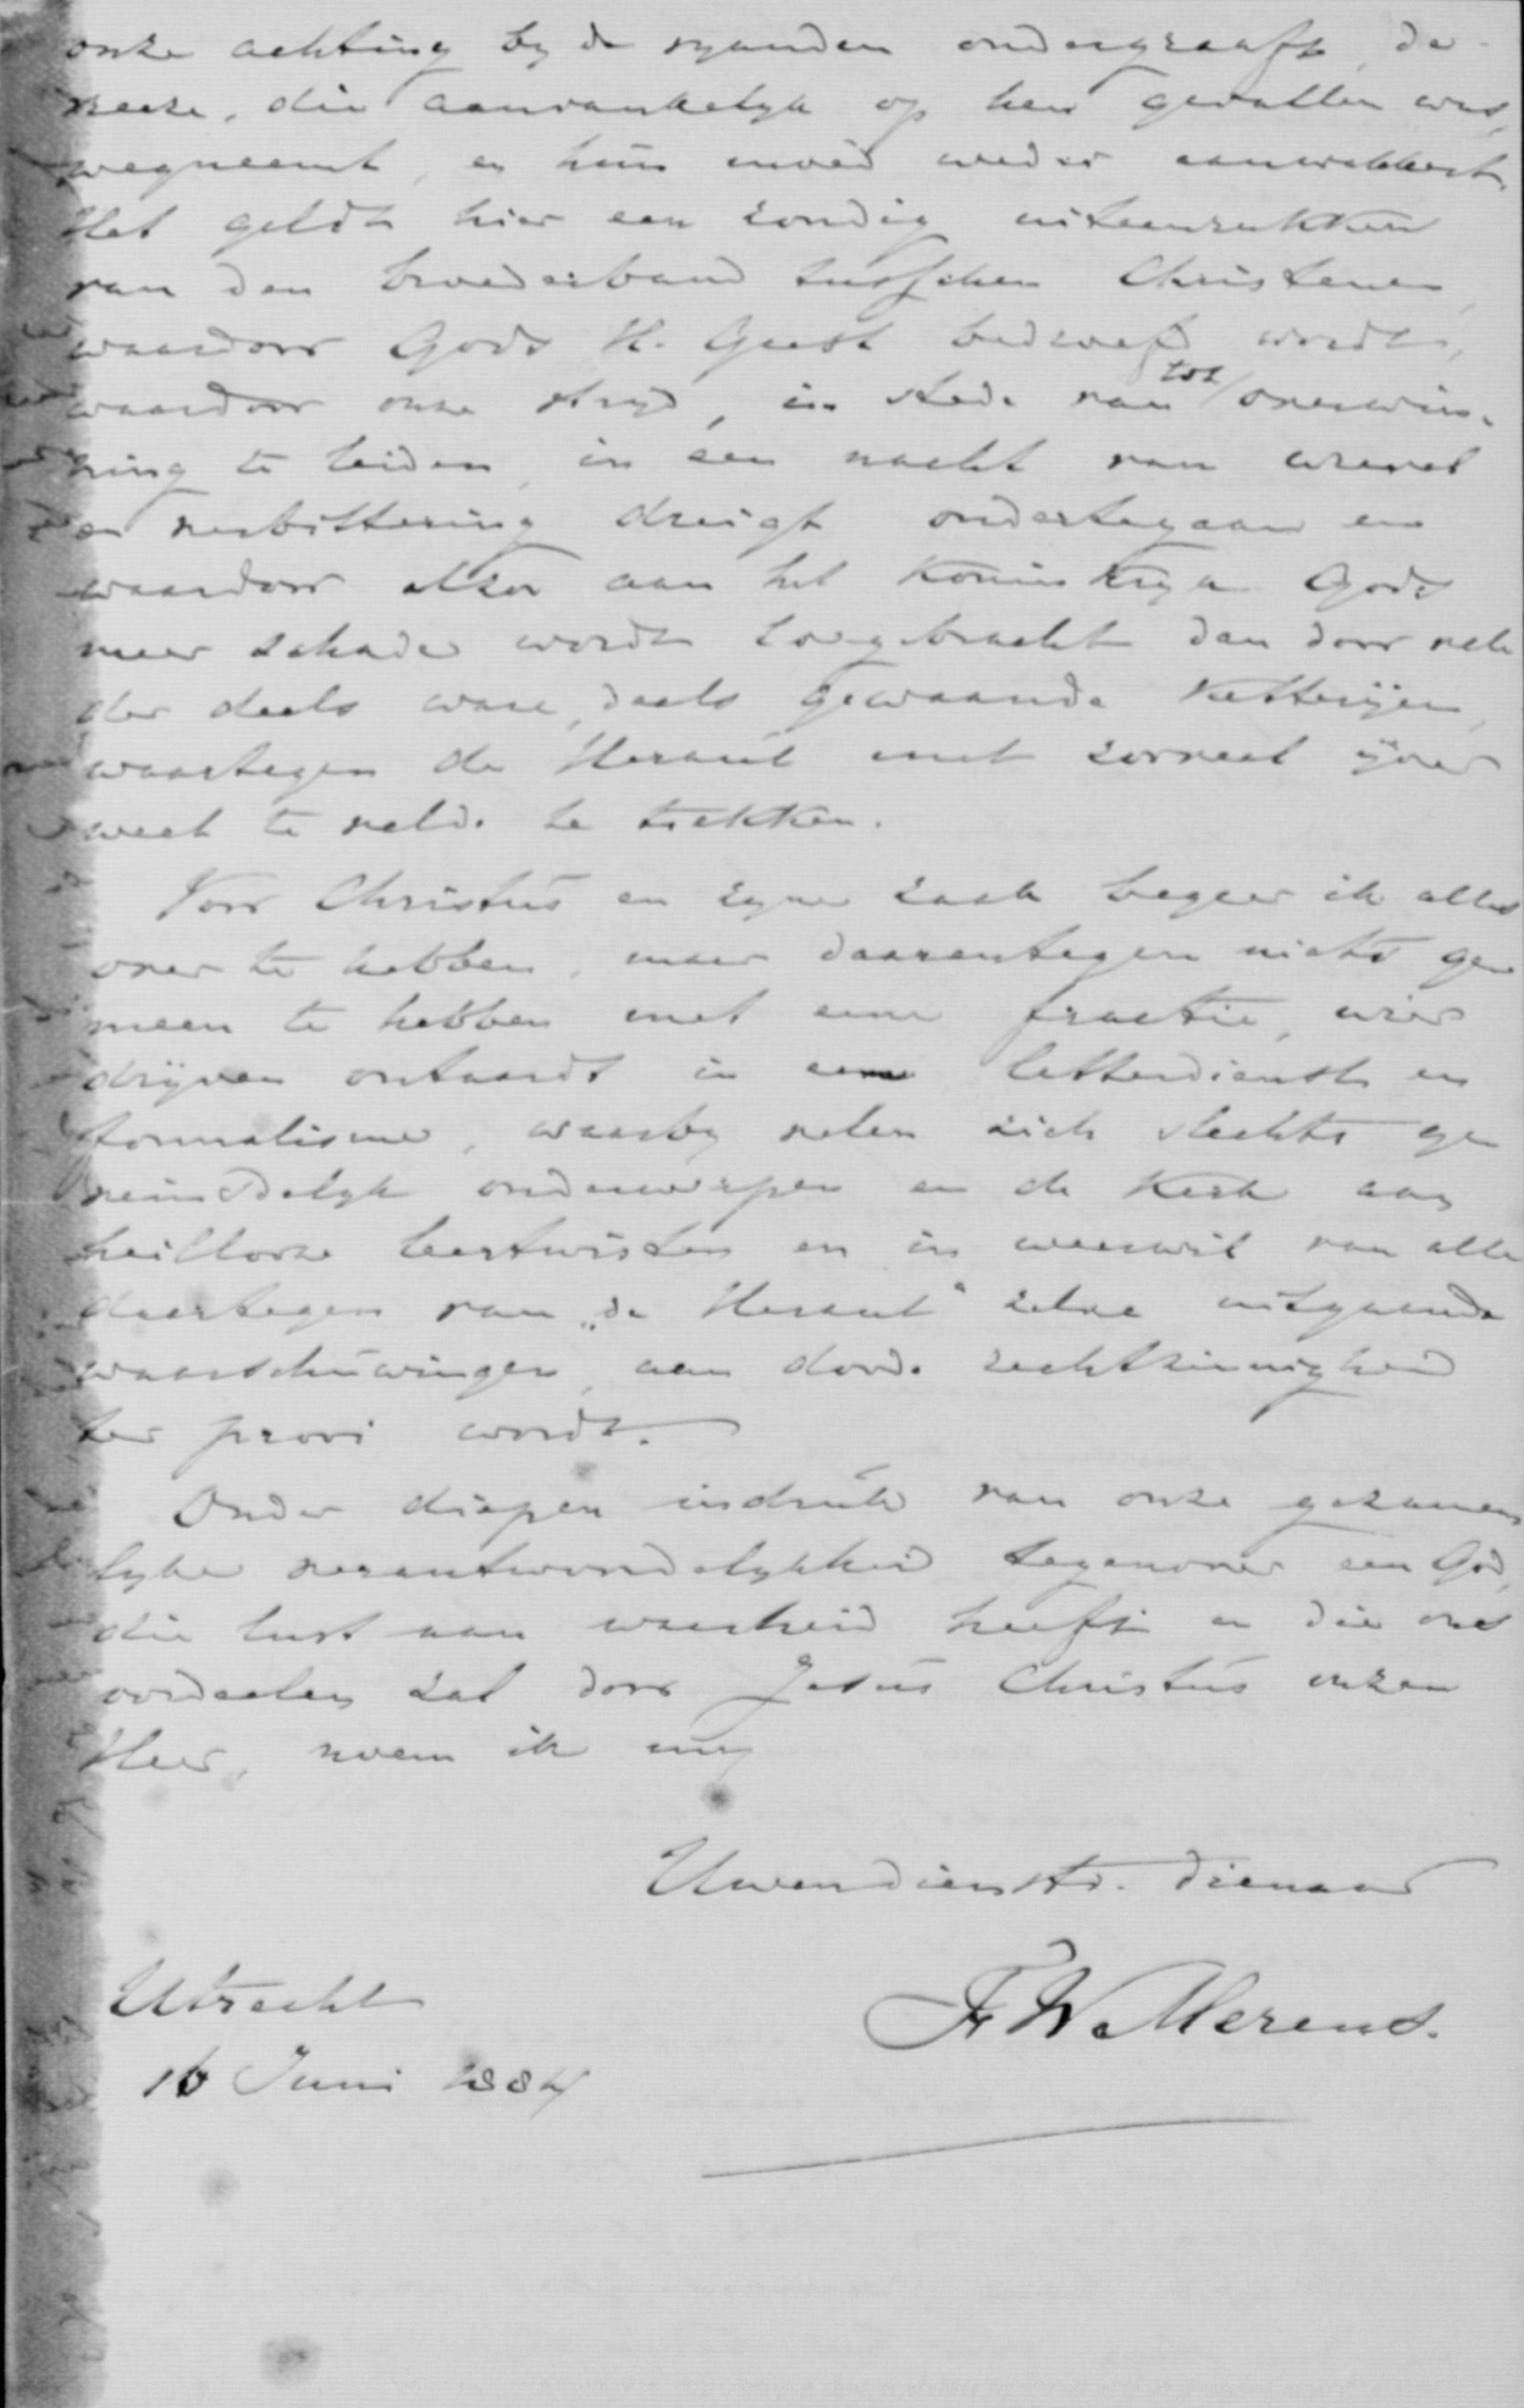 onze achting by de vyanden ondergraaft, de
vreeze, die aanvankelyk op hen gevallen was,
wegneemt, en hun moed weder aanwakkert.
Het geldt hier een zondig uiteenrukken
van den broederband tusschen Christenen,
waardoor Gods H. Geest bedroefd wordt,
waardoor onze stryd, in stede van tot overwin-
ning te leiden, in een nacht van wrevel
en verbittering dreigt ondertegaan en
waardoor alzoo aan het Koninkryk Gods
meer schade wordt toegebracht dan door vele
der deels ware, deels gewaande Ketterijen,
waartegen de Heraut met zooveel yver
weet te velde te trekken.
Voor Christus en zyne zaak begeer ik alles
over te hebben, maar daarentegen niets ge
meen te hebben met eene fractie, wier
drijven ontaardt in eene letterdienst en
formalisme, waarby velen zich slechts ge
veinsdelyk onderwerpen en de Kerk aan
heillooze leertwisten en in weerwil van alle
daartegen van "de Heraut" zelve uitgaande
waarschuwingen, aan doode rechtzinnigheid
ter prooi wordt.
Onder diepen indruk van onze gezamen
lyke verantwoordelykheid tegenover een God,
die lust aan waarheid heeft en die ons
oordeelen zal door Jesus Christus onzen
Heer, noem ik my
Uwen dienstv. dienaar
F. W. Merens.
Utrecht
16 Juni 1884